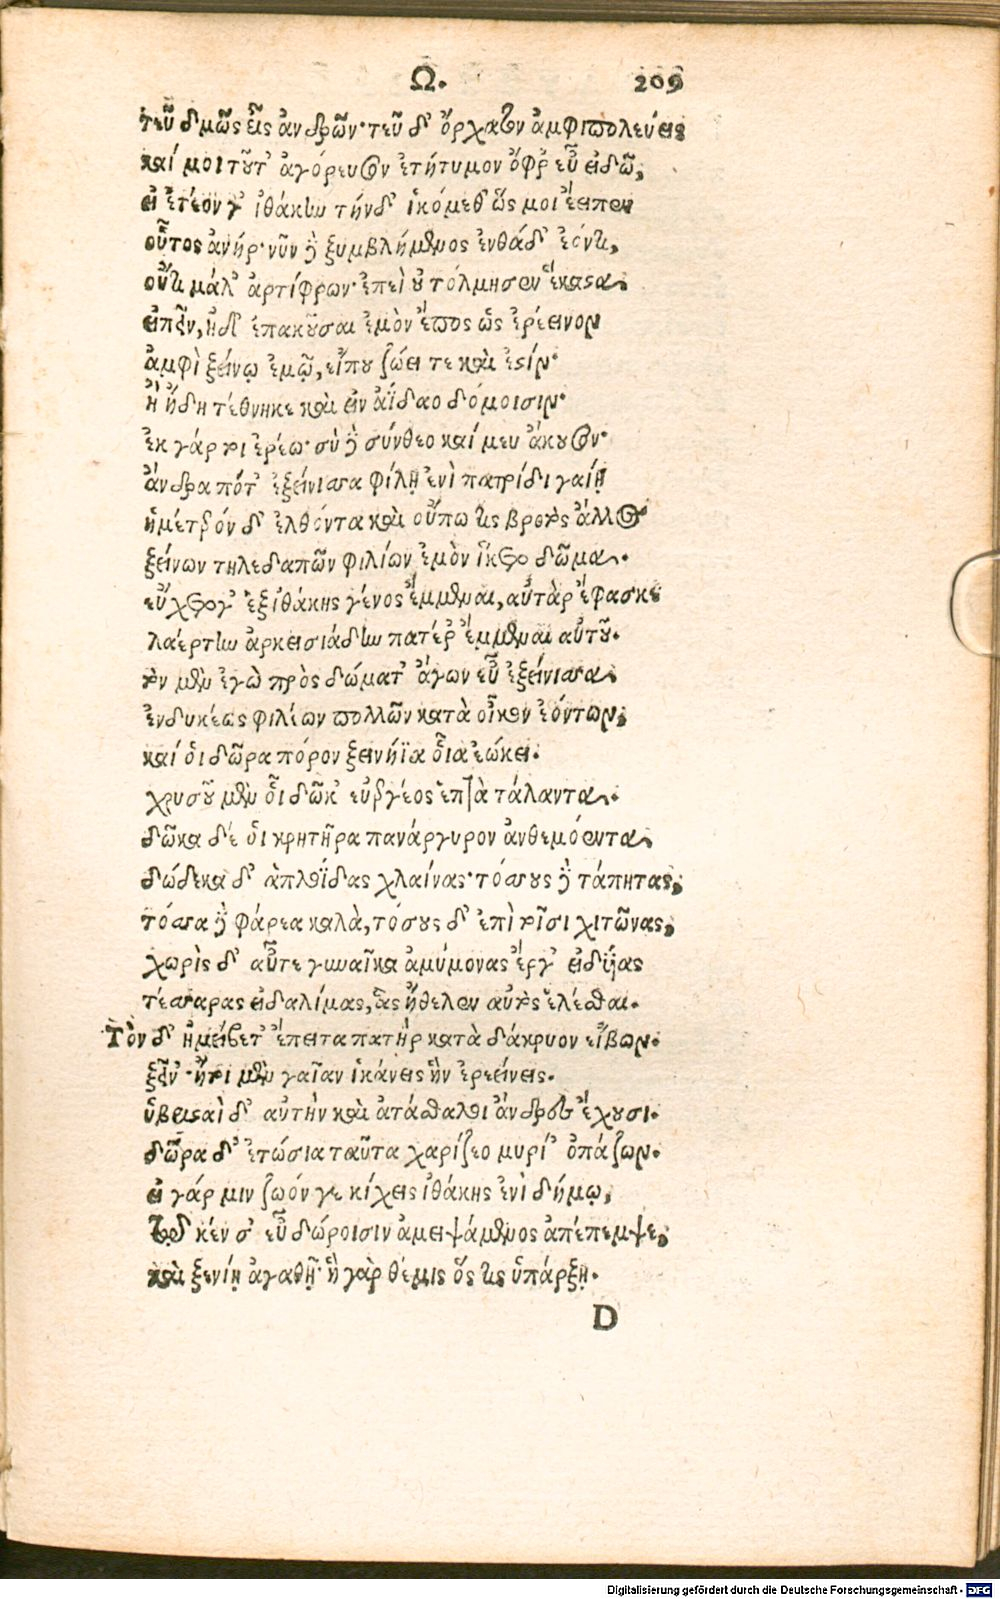 Ω. 209
τεῦ δμῶς εἶς ἀνδρῶν· τεῦ δ᾽ ὄρχατον ἀμφιπολεύεις
καί μοι τοῦτ᾽ ἀγόρευσον ἐτήτυμον ὄφρ᾽ εὖ εἰδῶ,
εἰ ἐτεόν γ᾽ ἰθάκην τήνδ᾽ ἱκόμεθ᾽ ὥς μοι ἔειπεν
οὗτος ἀνήρ· νῦν δὴ ξυμβλήμενος ἐνθάδ᾽ ἰόντι,
οὔτι μάλ᾽ ἀρτίφρων· ἐπεὶ οὐ τόλμησεν ἕκαστα
εἰπεῖν, ἠδ᾽ ἐπακοῦσαι ἐμὸν ἔπος ὡς ἐρέεινον
ἀμφὶ ξείνῳ ἐμῷ, εἴπου ζώει τε καὶ ἐστίν·
ἢ ἤδη τέθνηκε καὶ εἰν ἀΐδαο δόμοισιν·
ἐκ γάρ τοι ἐρέω· σὺ δὲ σύνθεο καί μευ ἄκουσον·
ἄνδρα πότ᾽ ἐξείνισσα φίλῃ ἐνὶ πατρίδι γαίῃ
ἡμέτερόν δ᾽ ἐλθόντα καὶ οὔπω τις βροτὸς ἄλλος
ξείνων τηλεδαπῶν φιλίων ἐμὸν ἵκετο δῶμα.
εὔχετο γ᾽ ἐξ ἰθάκης γένος ἔμμεναι, αὐτὰρ ἔφασκε
λαέρτην ἀρκεισιάδην πατέρ᾽ ἔμμεναι αὐτοῦ.
τὸν μὲν ἐγὼ πρὸς δώματ᾽ ἄγων εὖ ἐξείνισσα
ἐνδυκέως φιλέων πολλῶν κατὰ οἶκον ἐόντων,
καί οἱ δῶρα πόρον ξεινήϊα οἷα ἐῴκει.
χρυσοῦ μέν οἱ δῶκ᾽ εὐεργέος ἑπτὰ τάλαντα.
δῶκα δέ οἱ κρητῆρα πανάργυρον ἀνθεμόεντα,
δώδεκα δ᾽ ἁπλοΐδας χλαίνας· τόσσους δὲ τάπητας,
τόσσα δὲ φάρεα καλὰ, τόσους δ᾽ ἐπὶ τοῖσι χιτῶνας,
χωρὶς δ᾽ αὖτε γυναῖκα ἀμύμονας ἔργ᾽ εἰδυίας
τέσσαρας εἰδαλίμας, ἃς ἤθελεν αὐτὸς ἑλέσθαι.
Τὸν δ᾽ ἠμείβετ᾽ ἔπειτα πατὴρ κατὰ δάκρυον εἴβων.
ξεῖν᾽· ἤτοι μὲν γαῖαν ἱκάνεις ἣν ἐρεείνεις.
ὑβρισταὶ δ᾽ αὐτὴν καὶ ἀτάσθαλοι ἄνδρες ἔχουσι.
δῶρα δ᾽ ἐτώσια ταῦτα χαρίζεο μυρί᾽ ὀπάζων.
εἰ γάρ μιν ζωόν γε κίχεις ἰθάκης ἐνὶ δήμῳ,
τῷ κέν σ᾽ εὖ δώροισιν ἀμειψάμενος ἀπέπεμψε,
καὶ ξενίῃ ἀγαθῇ· ἣ γὰρ θέμις ὅς τις ὑπάρξῃ.
D
Digitalisierung gefördert durch die Deutsche Forschungsgemeinschaft - DFG